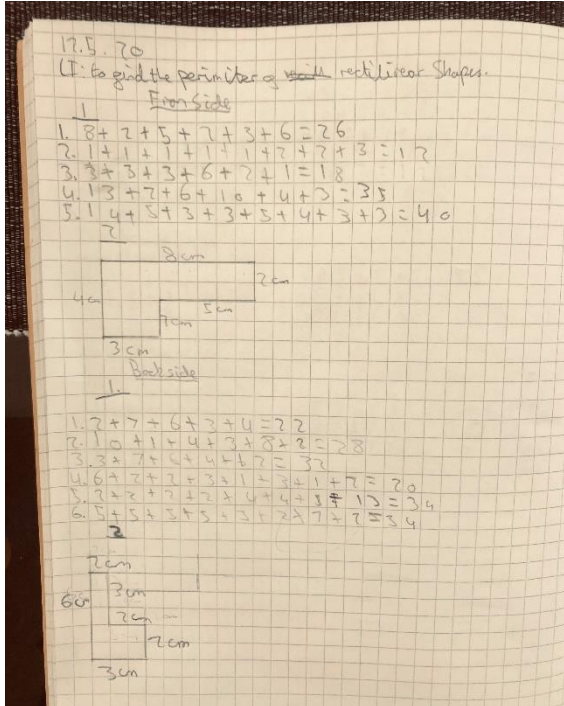 17.5.20
LI: to find the perimiter of rectilinear shapes.
Fron Side
1
1. 8+2+5+2+3+6=26
2. 1+1+1+1+1+2+2+3=12
3. 3+3+3+6+2+1=18
4. 13+2+6+10+4+3=35
5. 14+5+3+3+5+4+3+3=40
2
8cm
2cm
4cm
5cm
2cm
3cm
Backside
1.
1. 2+7+6+3+4=22
2. 10+1+4+3+8+2=28
3. 3+7+ = 32
4. 6+2+2+3+1+3+1+2=20
5. 2+2+2+2+4+4+ =34
6. 5+5+5+5+3+2+7+2=34
2
2cm
6cm
3cm
2cm
2cm
3cm